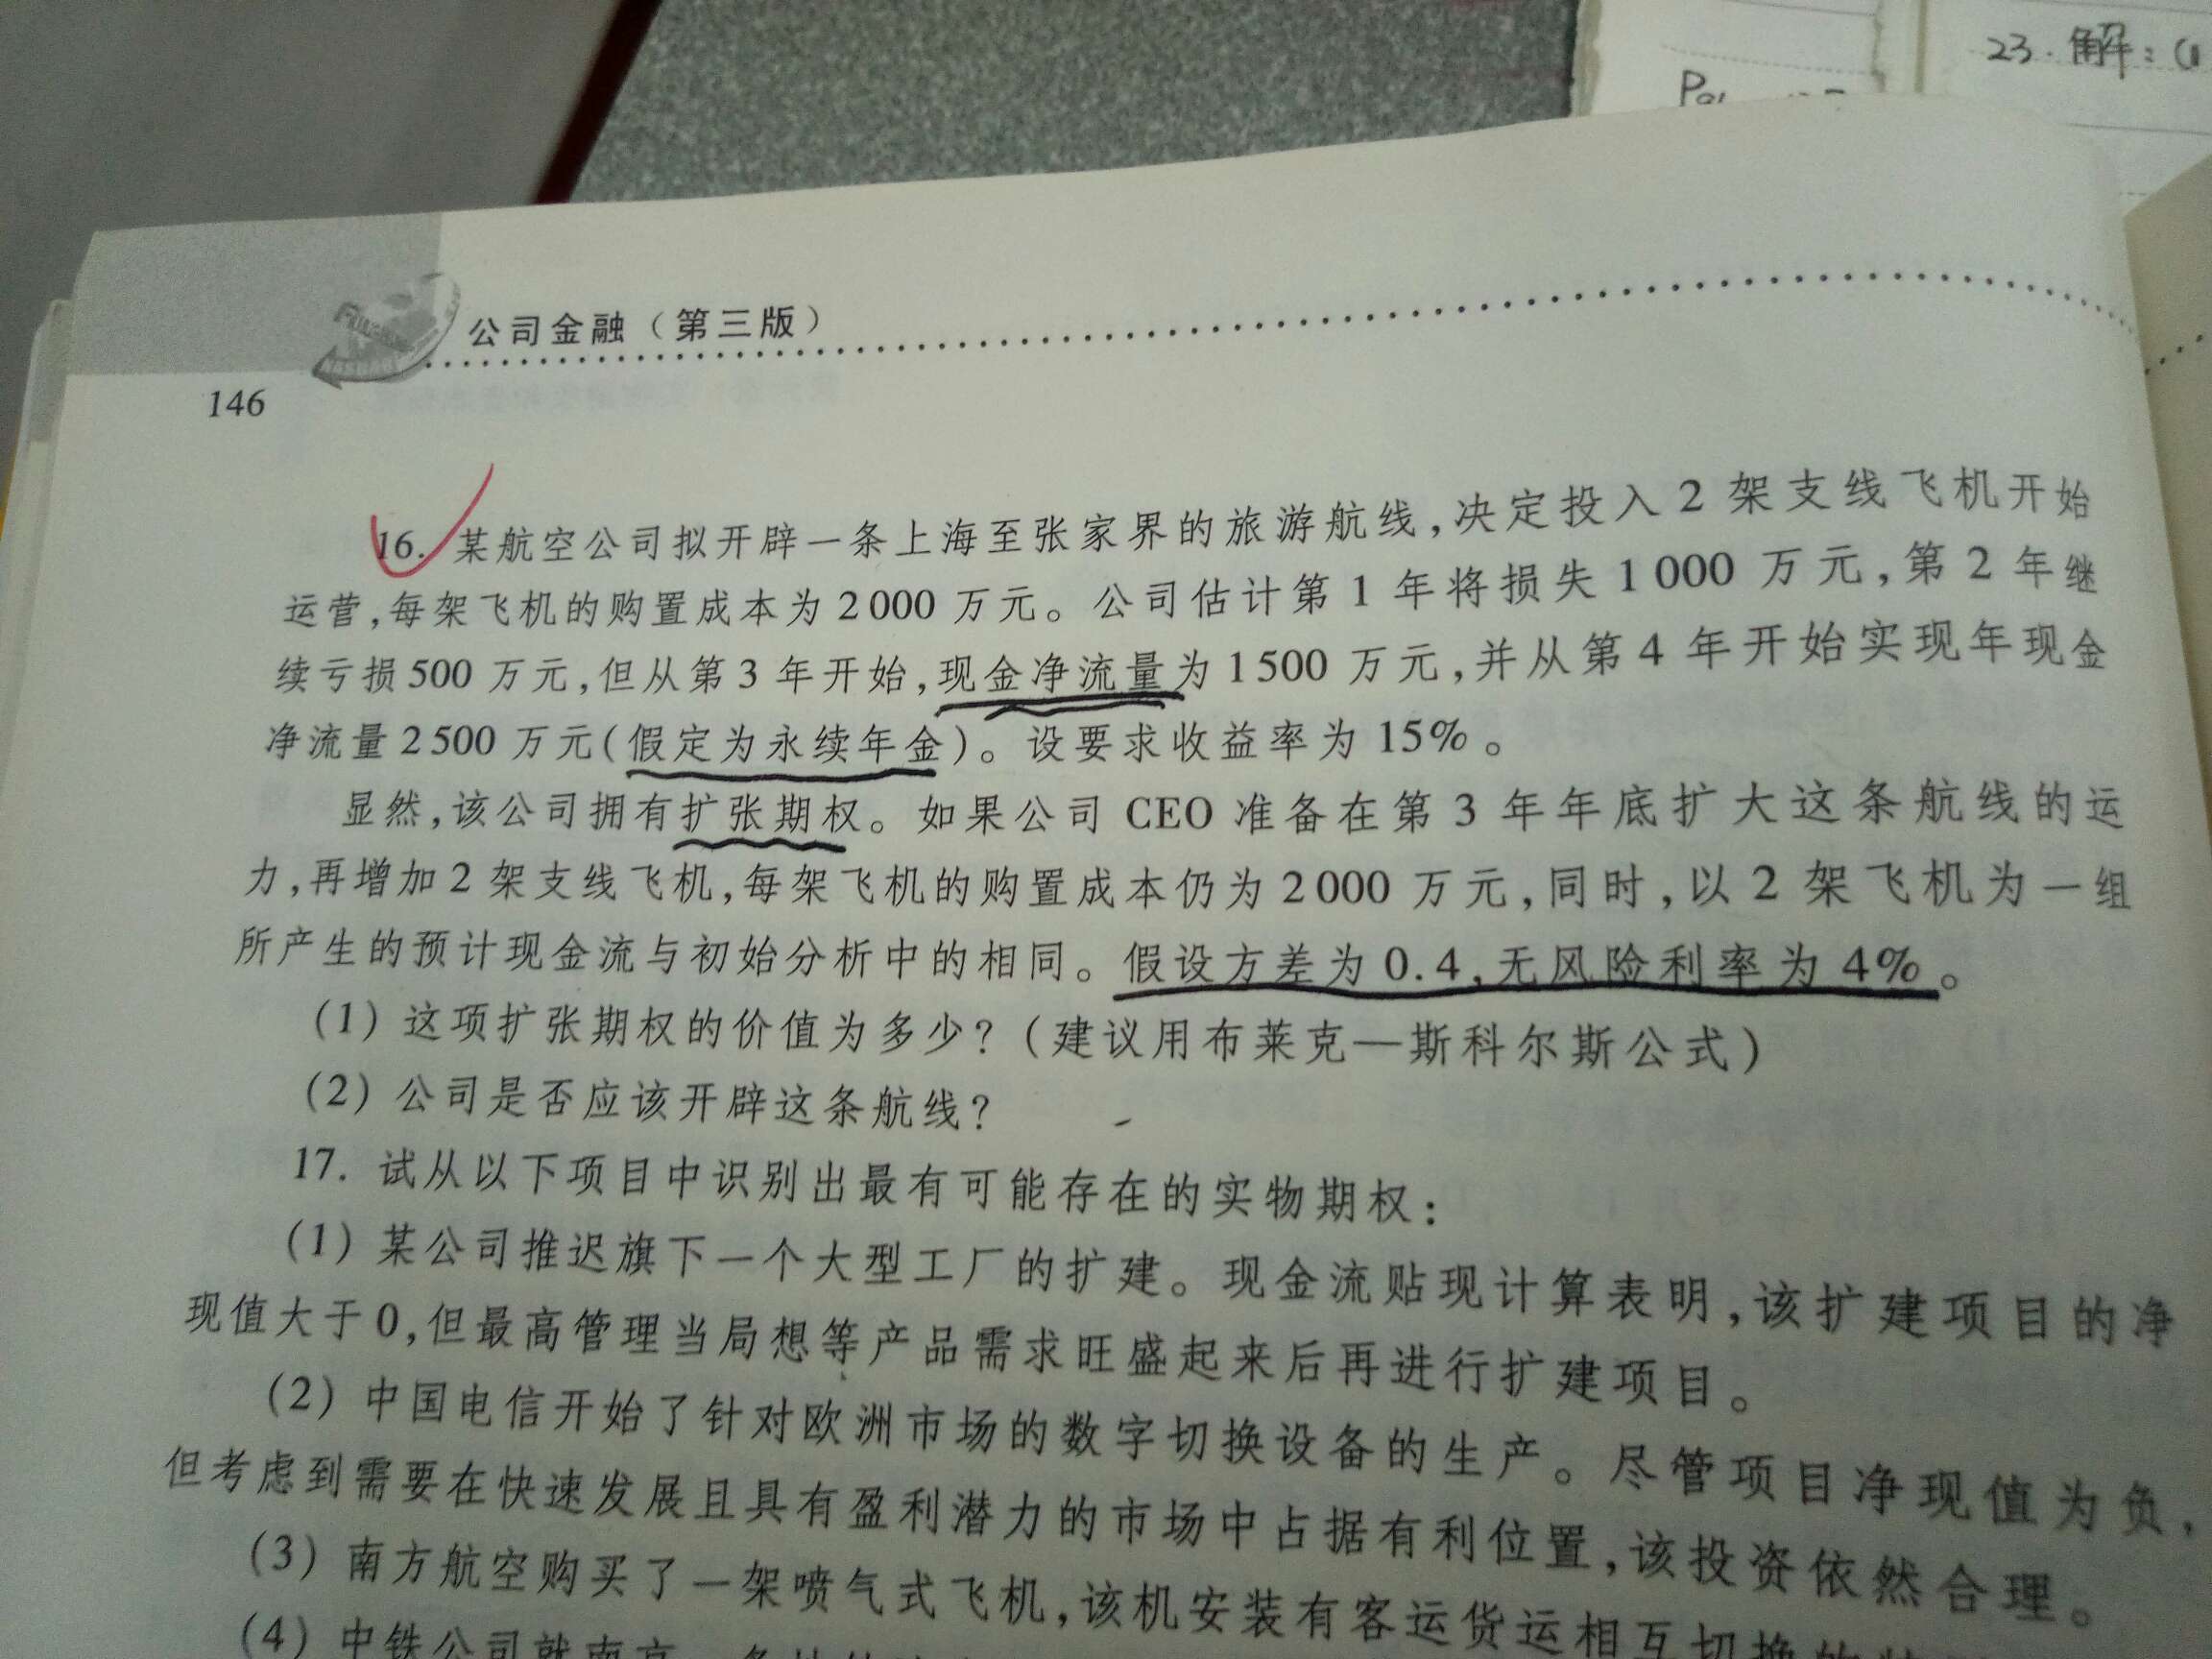 23. 解:(1
公司金融(第三版)
146
16. 某航空公司拟开辟一条上海至张家界的旅游航线,决定投入2架支线飞机开始
运营,每架飞机的购置成本为2 000万元。公司估计第1年将损失1 000万元,第2年继
续亏损500万元,但从第3年开始,现金净流量为1 500万元,并从第4年开始实现年现金
净流量2 500万元(假定为永续年金)。设要求收益率为15%。
显然,该公司拥有扩张期权。如果公司CEO准备在第3年年底扩大这条航线的运
力,再增加2架支线飞机,每架飞机的购置成本仍为2 000万元,同时,以2架飞机为一组
所产生的预计现金流与初始分析中的相同。假设方差为0.4,无风险利率为4%。
(1) 这项扩张期权的价值为多少?(建议用布莱克—斯科尔斯公式)
(2) 公司是否应该开辟这条航线?
17. 试从以下项目中识别出最有可能存在的实物期权:
(1) 某公司推迟旗下一个大型工厂的扩建。现金流贴现计算表明,该扩建项目的净
现值大于0,但最高管理当局想等产品需求旺盛起来后再进行扩建项目。
(2) 中国电信开始了针对欧洲市场的数字切换设备的生产。尽管项目净现值为负,
但考虑到需要在快速发展且具有盈利潜力的市场中占据有利位置,该投资依然合理。
(3) 南方航空购买了一架喷气式飞机,该机安装有客运货运相互切换的
(4) 中铁公司就南京一